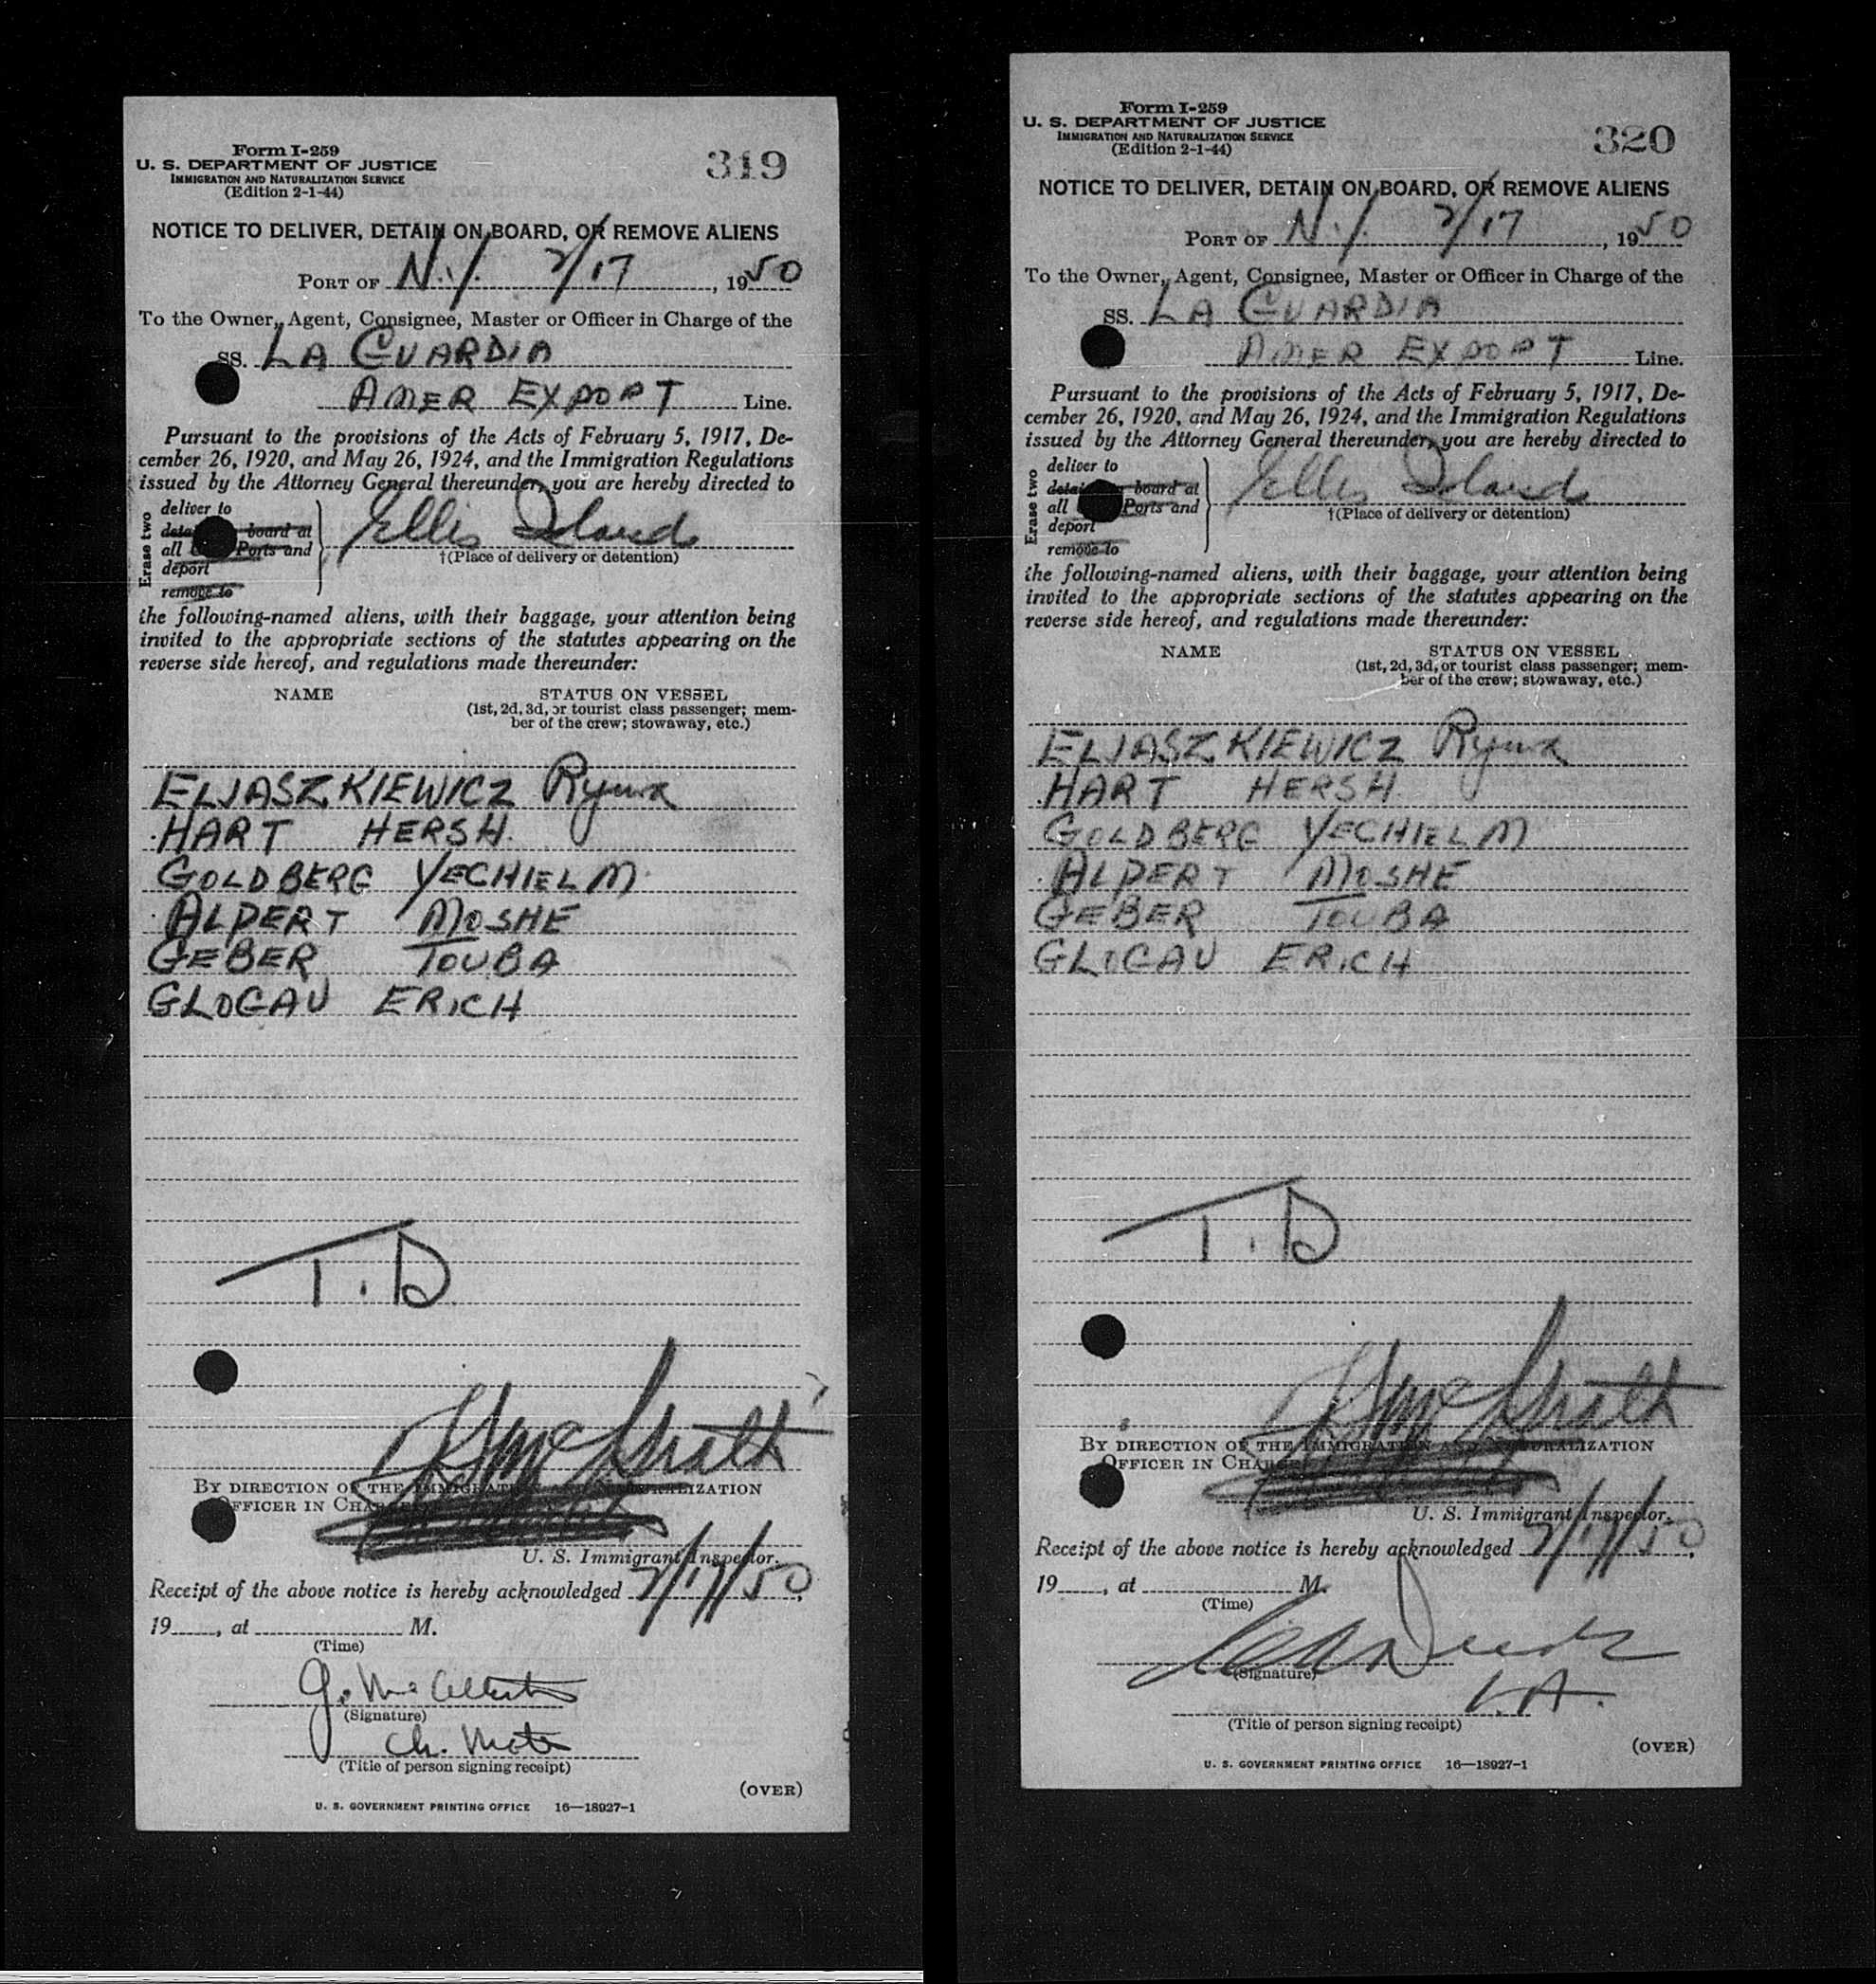 Form I-259
U. S. DEPARTMENT OF JUSTICE
IMMIGRATION AND NATURALIZATION SERVICE
(Edition 2-1-44)
319
NOTICE TO DELIVER, DETAIN ON BOARD, OR REMOVE ALIENS
PORT OF N.Y. 2/17, 1950
To the Owner, Agent, Consignee, Master or Officer in Charge of the
SS. LA GUARDIA
AMER EXPORT Line.
Pursuant to the provisions of the Acts of February 5, 1917, De-
cember 26, 1920, and May 26, 1924, and the Immigration Regulations
issued by the Attorney General thereunder, you are hereby directed to
Erase two
deliver to
board at
all Ports and
deport
remove to
Ellis Island
†(Place of delivery or detention)
the following-named aliens, with their baggage, your attention being
invited to the appropriate sections of the statutes appearing on the
reverse side hereof, and regulations made thereunder:
NAME STATUS ON VESSEL
(1st, 2d, 3d, or tourist class passenger; mem-
ber of the crew; stowaway, etc.)
ELJASZKIEWICZ Rywa
HART HERSH.
GOLDBERG YECHIEL M.
ALPERT MOSHE
GEBER TOUBA
GLOGAU ERICH
T.D
McGrath
BY DIRECTION OF THE IMMIGRATION AND NATURALIZATION
OFFICER IN CHARGE
U. S. Immigrant Inspector.
Receipt of the above notice is hereby acknowledged 2/17/50,
19____, at ____ M.
(Time)
(Signature)
Ch. Mate
(Title of person signing receipt)
(OVER)
U. S. GOVERNMENT PRINTING OFFICE 16—18927-1
Form I-259
U. S. DEPARTMENT OF JUSTICE
IMMIGRATION AND NATURALIZATION SERVICE
(Edition 2-1-44)
320
NOTICE TO DELIVER, DETAIN ON BOARD, OR REMOVE ALIENS
PORT OF N.Y. 2/17, 1950
To the Owner, Agent, Consignee, Master or Officer in Charge of the
SS. LA GUARDIA
AMER EXPORT Line.
Pursuant to the provisions of the Acts of February 5, 1917, De-
cember 26, 1920, and May 26, 1924, and the Immigration Regulations
issued by the Attorney General thereunder, you are hereby directed to
Erase two
deliver to
board at
all Ports and
deport
remove to
Ellis Island
†(Place of delivery or detention)
the following-named aliens, with their baggage, your attention being
invited to the appropriate sections of the statutes appearing on the
reverse side hereof, and regulations made thereunder:
NAME STATUS ON VESSEL
(1st, 2d, 3d, or tourist class passenger; mem-
ber of the crew; stowaway, etc.)
ELJASZKIEWICZ Rywa
HART HERSH.
GOLDBERG YECHIEL M
ALPERT MOSHE
GEBER TOUBA
GLOGAU ERICH
T.D
McGrath
BY DIRECTION OF THE IMMIGRATION AND NATURALIZATION
OFFICER IN CHARGE
U. S. Immigrant Inspector.
Receipt of the above notice is hereby acknowledged 2/17/50,
19____, at ____ M.
(Time)
(Signature)
(Title of person signing receipt)
(OVER)
U. S. GOVERNMENT PRINTING OFFICE 16—18927-1